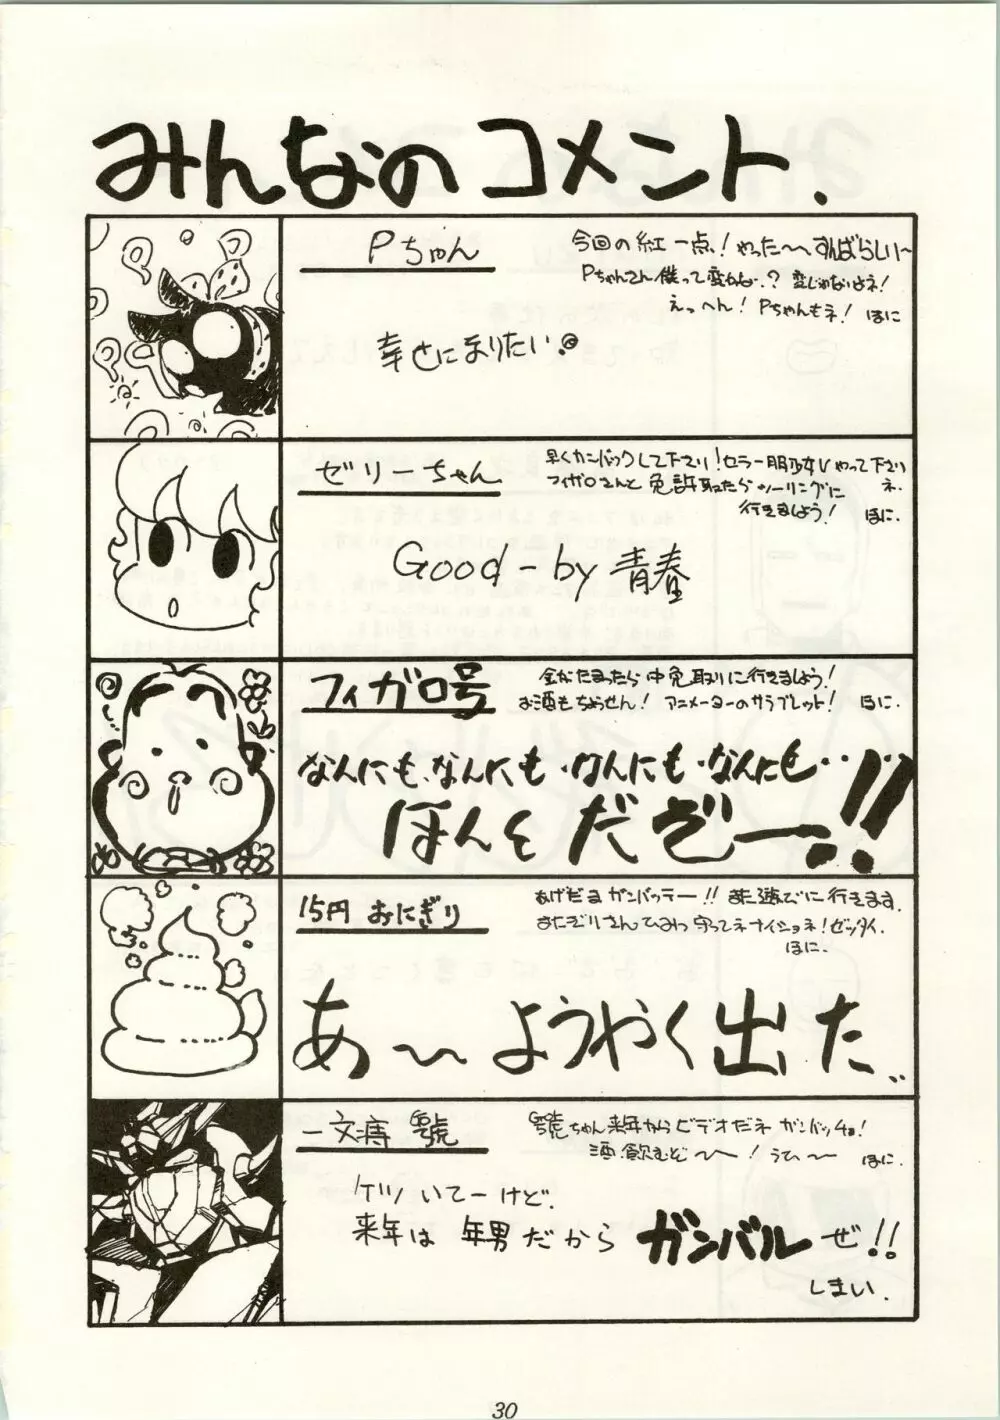 みんなのコメント.
Pちゃん
今回の紅一点!やった〜〜すんばらしい〜
Pちゃんさん僕って変かな.?変じゃないよネ!
えっへん!Pちゃんもネ! ほに
幸せになりたい.
ゼリーちゃん
早くカンバックして下さい!セラー服少女Vやって下さいネ.
フィガロさんと免許取たらツーリングに
行きましょう! ほに.
Good-by青春
フィガロ号
金がたまったら中免取りに行きましょう!
お酒もちょうせん!アニメーターのサラブレット! ほに.
なんにも、なんにも・なんにも・なんにも・・・・
ほんとだぞー.!!
15円おにぎり
あげだまガンバッテー!!また遊びに行きます.
またぞりさんひみつ守ってネナイショネ!ゼッタイ.
ほに.
あ〜〜ようやく出た...
一文薄號
號ちゃん来年からビデオだネガンバッチョ!
酒飲むぞ〜〜!うひ〜〜 ほに.
ケツいてーけど.
来年は年男だからガンバルぜ!!
しまい.
30